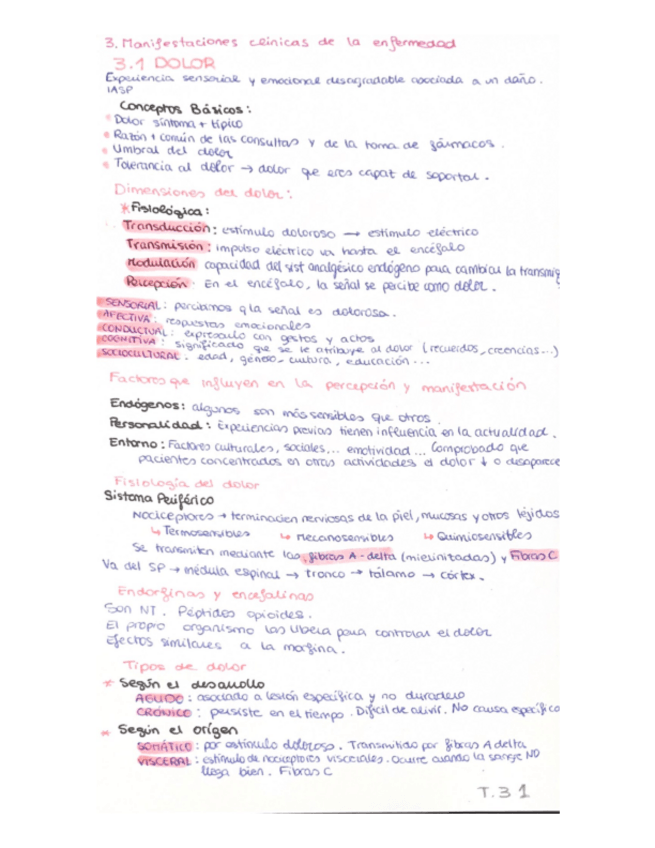 3. Manifestaciones clínicas de la enfermedad
3.1 DOLOR
Experiencia sensorial y emocional desagradable asociada a un daño.
IASP
Conceptos Básicos:
Dolor síntoma + típico
Razón + común de las consultas y de la toma de fármacos.
Umbral del dolor
Tolerancia al dolor → dolor que eres capat de soportal.
Dimensiones del dolor:
* Fisiológica:
Transducción: estímulo doloroso → estímulo eléctrico
Transmisión: impulso eléctrico va hasta el encéfalo
Modulación capacidad del sist analgésico endógeno para cambiar la transmi
Percepción: En el encéfalo, la señal se percibe como dolor.
SENSORIAL: percibimos q la señal es dolorosa.
AFECTIVA: respuestas emocionales
CONDUCTUAL: expresarlo con gestos y actos
COGNITIVA: significado que se le atribuye al dolor (recuerdos, creencias...)
SOCIOCULTURAL: edad, género, cultura, educación...
Factores que influyen en la percepción y manifestación
Endógenos: algunos son más sensibles que otros.
Personalidad: Experiencias previas tienen influencia en la actualidad.
Entorno: Factores culturales, sociales... emotividad... Comprobado que
pacientes concentrados en otras actividades el dolor ↓ o desaparece
Fisiología del dolor
Sistema Periférico
Nociceptores → terminación nerviosas de la piel, mucosas y otros tejidos
↳ Termosensibles ↳ Mecanosensibles ↳ Quimiosensibles
Se transmiten mediante las fibras A-delta (mielinitadas) y Fibras C
Va del SP → médula espinal → tronco → tálamo → córtex.
Endorfinas y encefalinas
Son NT. Péptidos opioides.
El propio organismo las libera para controlar el dolor
Efectos similares a la morfina.
Tipos de dolor
* Según el desarrollo
AGUDO: asociado a lesión específica y no duradero
CRÓNICO: persiste en el tiempo. Difícil de alivir. No causa específico
* Según el orígen
SOMÁTICO: por estímulo doloroso. Transmitido por fibras A delta
VISCERAL: estímulo de nociceptores viscerales. Ocurre cuando la sangre NO
llega bien. Fibras C
T.3 1